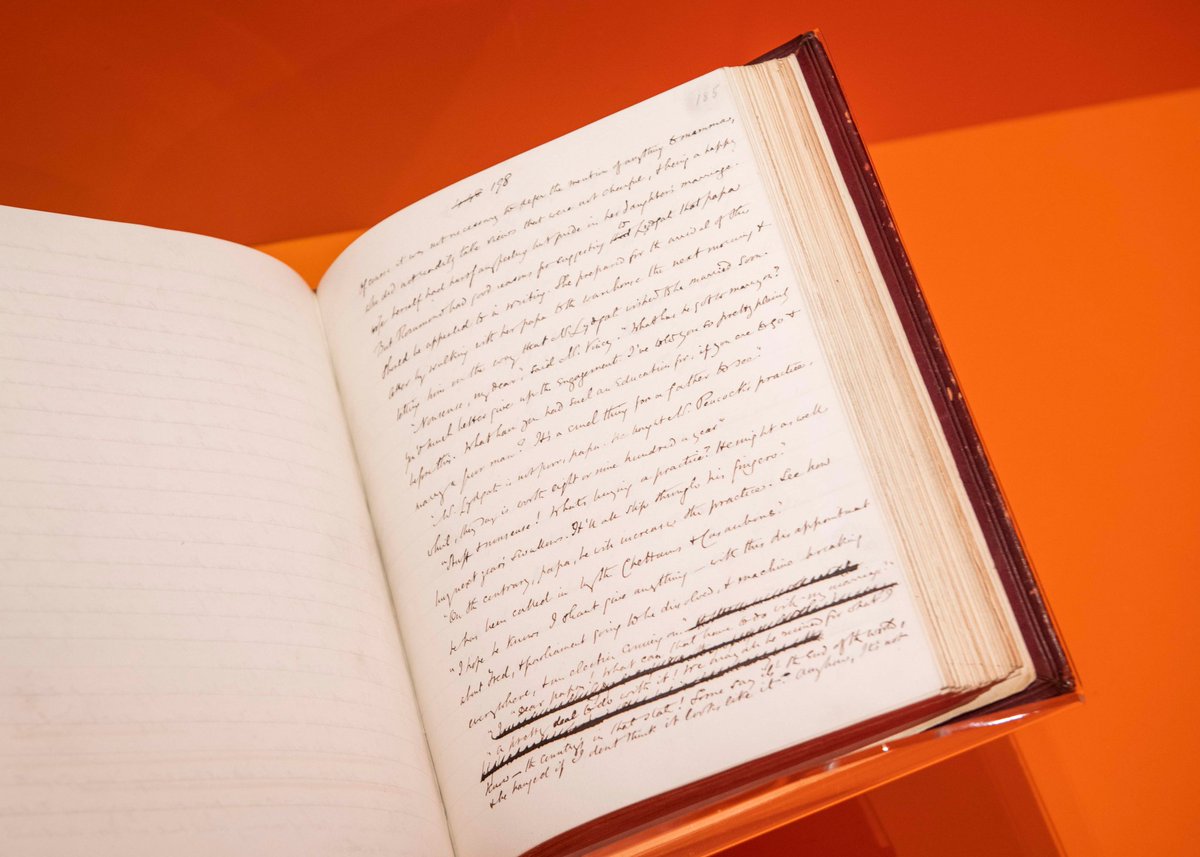 185
198
Of course it was not necessary to defer the mention of anything to mamma,
who did not readily take views that were not cheerful, & being a happy
wife herself had hardly any feeling but pride in her daughter's marriage.
But Rosamond had good reasons for suggesting to Lydgate that papa
should be appealed to in writing. She prepared for the arrival of the
letter by walking with her papa to the warehouse the next morning &
telling him on the way that Mr Lydgate wished to be married soon.
"Nonsense, my dear," said Mr Vincy. "What has he got to marry on?
You'd much better give up the engagement. I've told you so pretty plainly
before this. What have you had such an education for, if you are to go &
marry a poor man? It's a cruel thing for a father to see."
"Mr Lydgate is not poor, papa. He bought Mr Peacock's practice,
which, they say, is worth eight or nine hundred a year."
"Stuff & nonsense! What's buying a practice? He might as well
buy next year's swallows. It'll all slip through his fingers."
"On the contrary, papa, he will increase the practice. See how
he has been called in by the Chettams & Casaubons."
"I hope he knows I shant give anything — with this disappointment
about Fred, & parliament going to be dissolved, & machine breaking
everywhere, & an election coming on"
"Dear papa! what can that have to do with my marriage?"
"A pretty deal to do with it! We may all be ruined for what I
know — the country's in that state! Some say it's the end of the world,
& be hanged if I don't think it looks like it. Anyhow, it's not